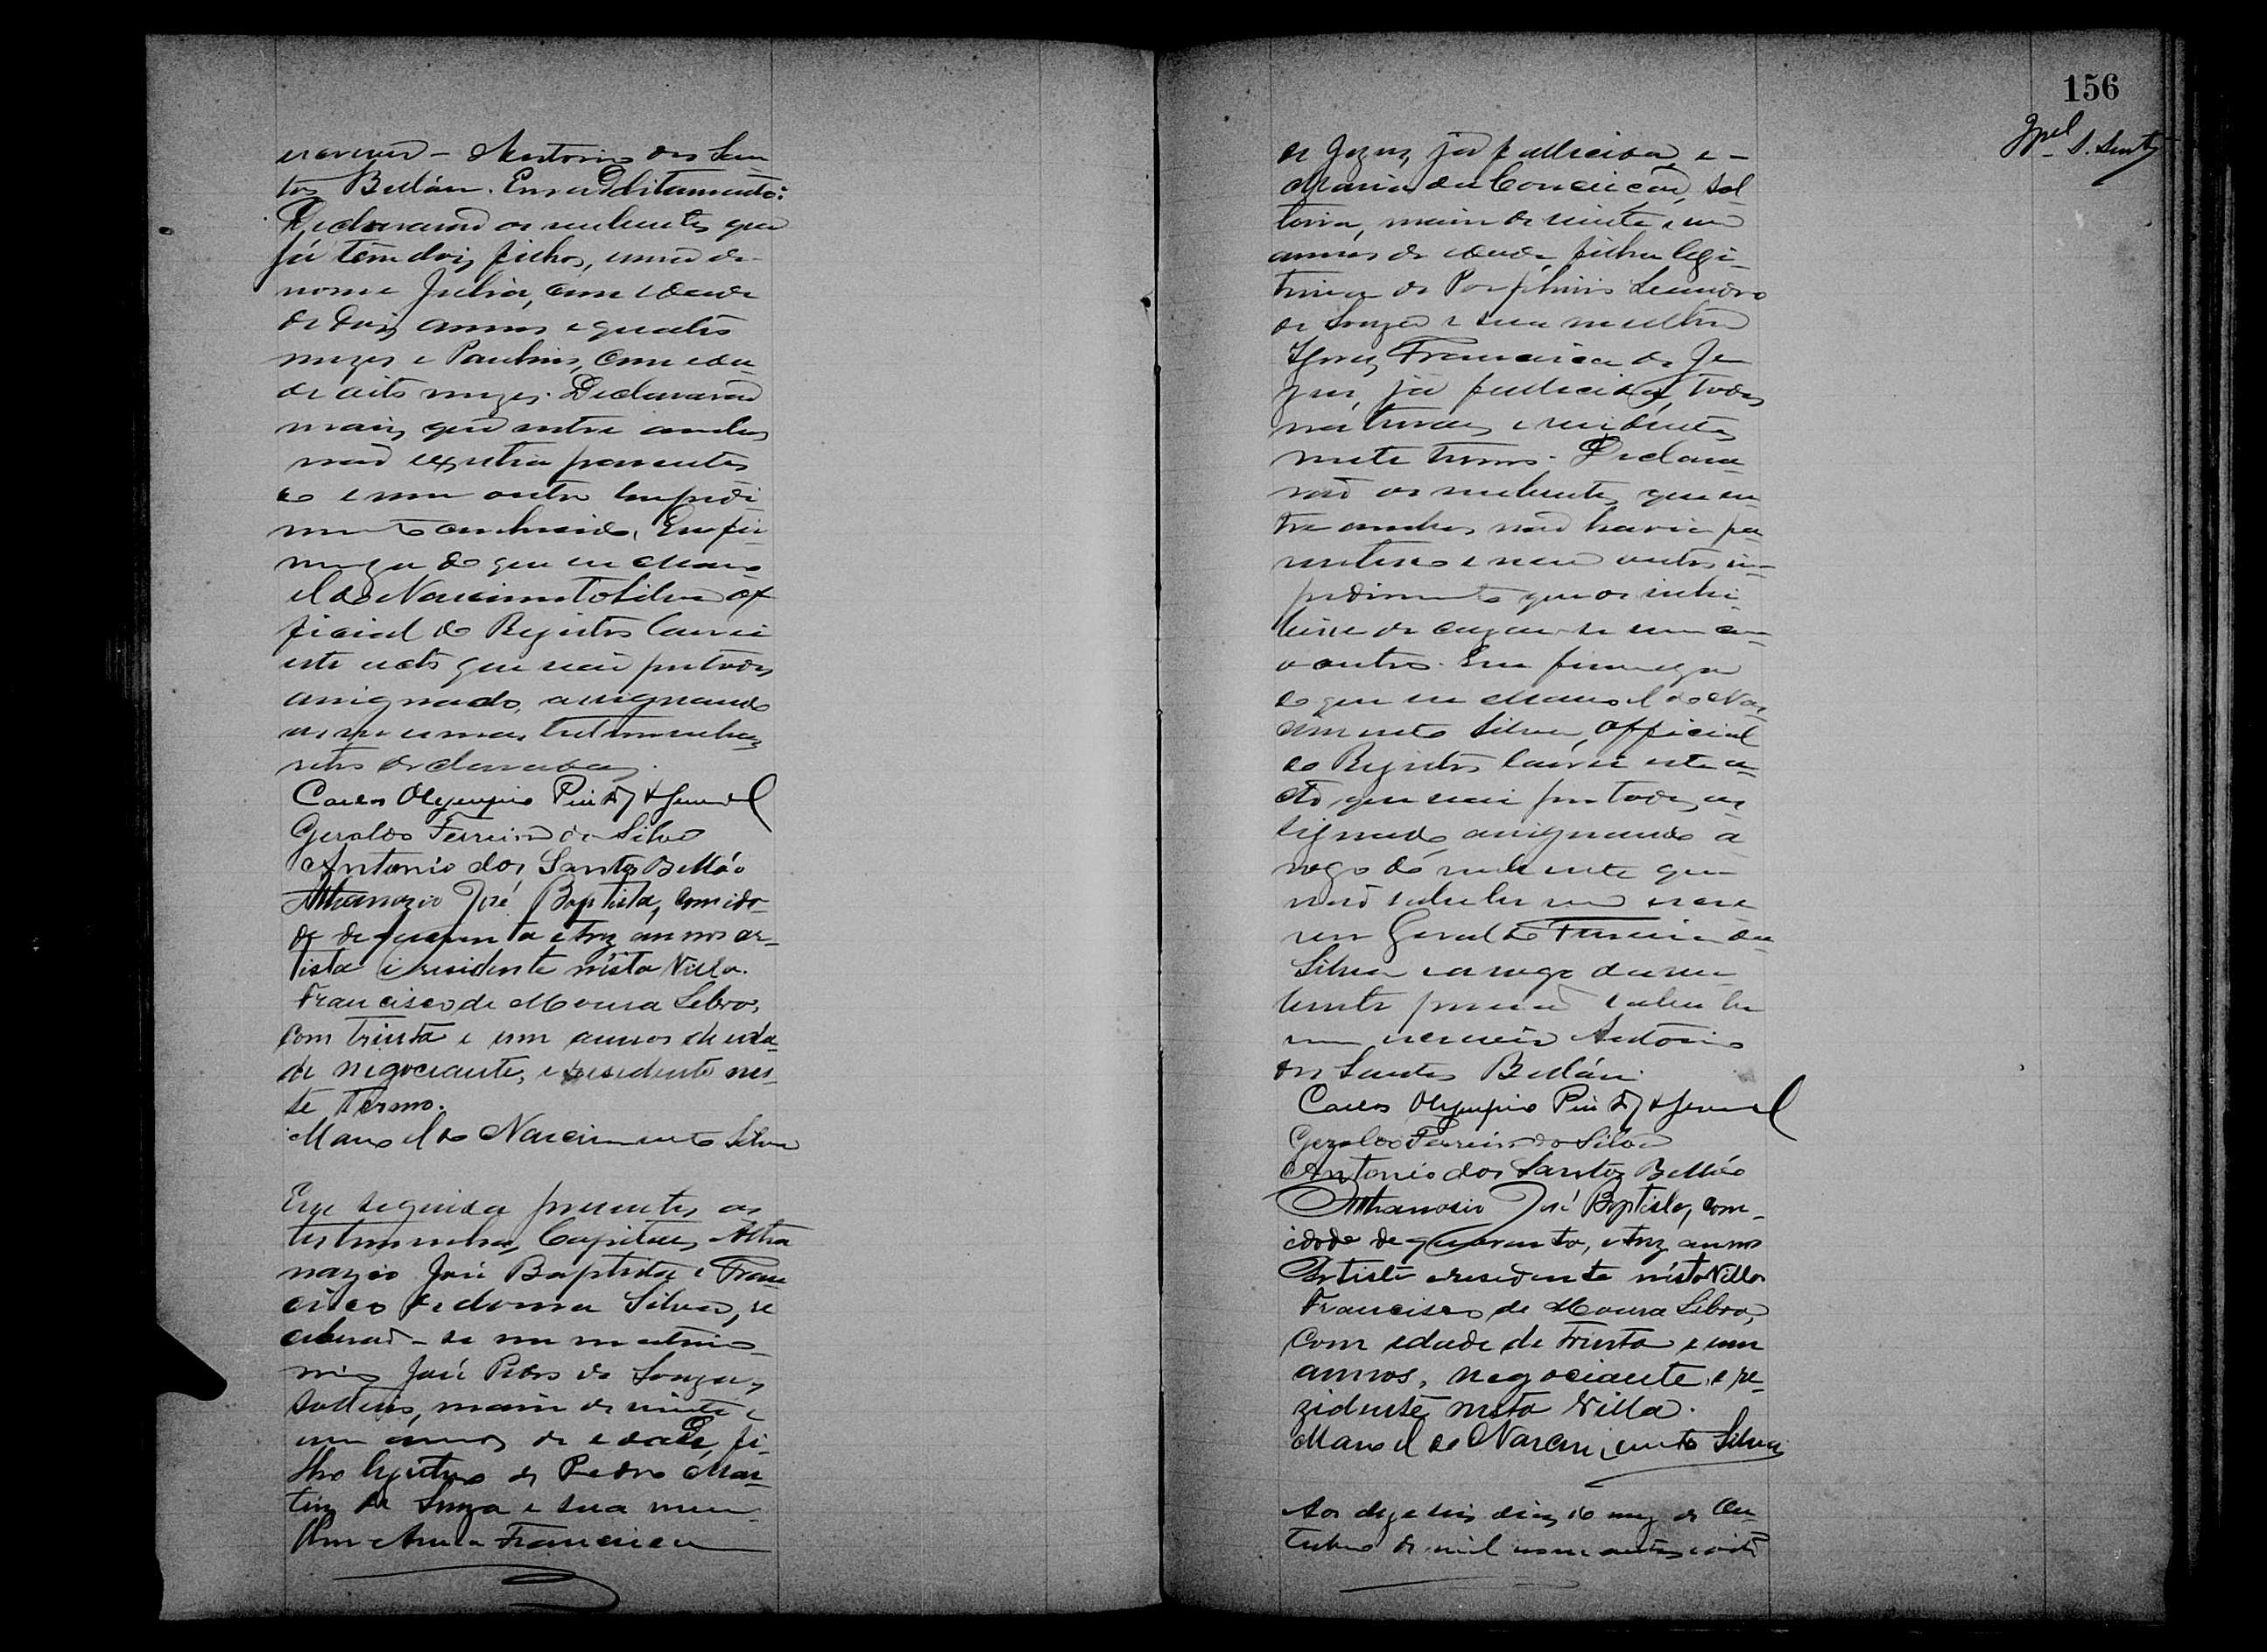 escrever – Antonio dos San
tos Bellão. Em additamento:
Declararão os nubentes que
já têm dois filhos, uma de
nome Julia, com idade
de dois annos e quatro
mezes e Paulino, com ida
de oito mezes. Declararão
mais que entre ambos
não existia parentes
co e nem outro impedi
mento conhecido. Em fir
meza do que eu Mano
el do Nascimento Silva of
ficial do Registro lavrei
este acto que vai por todos
assignado, assignando
as mesmas testemunhas
retro declaradas.
Carlos Olympio
Geraldo Ferreira da Silva
Antonio dos Santos Bellão
Athanazio José Baptista, com ida-
de de quarenta e trez annos ar-
tista e residente nésta Villa.
Francisco de Moura Lebro,
com trinta e um annos de ida-
de negociante, e residente nes-
te Termo.
Manoel do Nascimento Silva
Em seguida presentes as
testemunhas, Capitães Atha
nazio José Baptista e Fran
cisco de Moura Silva, re
ceberão-se em matrimo-
nio José Pedro de Souza,
solteiro, maior de vinte e
um annos de edade, fi-
lho legitimo de Pedro Mar-
tins de Souza e sua mu-
lher Anna Francisca
156
de Jezus, já fallecida, e –
Maria da Conceição, sol
teira, maior de vinte e um
annos de edade, filha legi-
tima de Porphirio Leandro
de Souza e sua mulher
Ignez Francisca de Je
zus, já fallecida, todos
naturaes e residentes
neste termo. Declara
rão os nubentes que en
tre ambos não havia pa
rentesco e nem outro im-
pedimento que os inhi-
bisse de cazar-se um com
o outro. Em firmeza
do que eu Manoel do Nas
cimento Silva, official
do Registro lavrei este a-
cto que vai por todos as
signado, assignando a
rogo do nubente que
não sabe ler nem escre
ver Geraldo Ferreira da
Silva e a rogo da nu
bente por não saber ler
nem escrever Antonio
dos Santos Bellão.
Carlos Olympio
Geraldo Ferreira da Silva
Antonio dos Santos Bellão
Athanasio José Baptista, com-
idade de quarenta, e trez annos
Artista e residente nésta Villa
Francisco de Moura Lebro,
com edade de trinta e um
annos, negociante, e re-
zidente nesta Villa.
Manoel do Nascimento Silva
Aos dezeseis dias do mez de Ou-
tubro de mil novecentos e oito